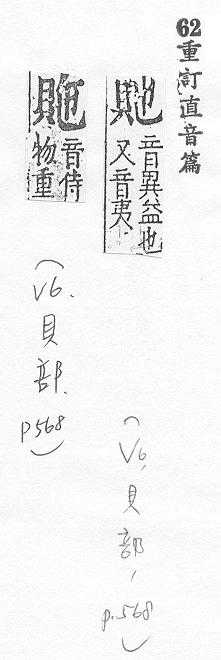 62重訂直音篇
貤
音異益也
又音夷
(V6, 貝部, p.568)
音侍
物重
(V6. 貝部. p568)